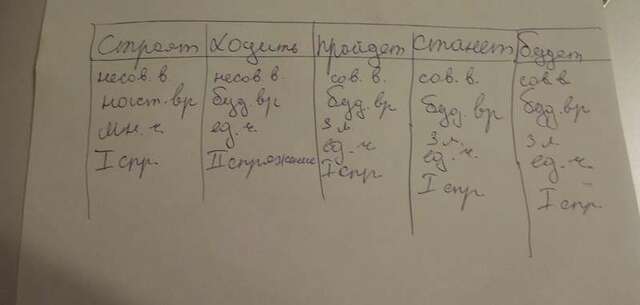 Строят Ходить Пройдет Станет Будет
несов. в. несов в. сов. в. сов. в. сов в
наст. вр буд вр буд. вр буд. вр буд. вр
мн. ч. ед. ч. 3 л 3 л. 3 л
I спр. II спряжение ед. ч. ед. ч. ед. ч.
I спр I спр I спр.